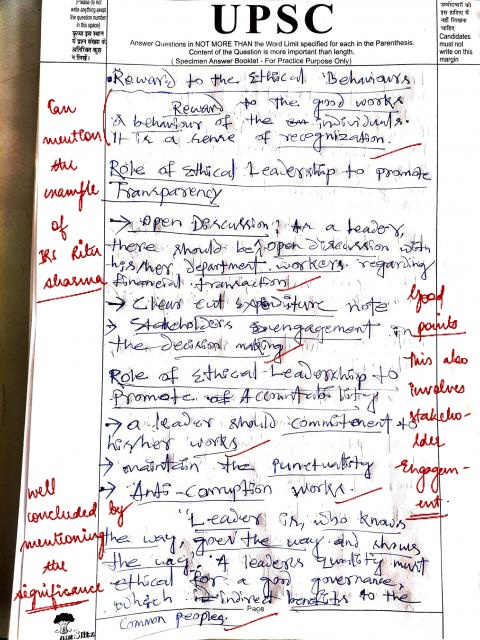 (Please do not
write anything except
the question number
in this space)
कृपया इस स्थान
में प्रश्न संख्या के
अतिरिक्त कुछ
न लिखें।
UPSC
Answer Questions in NOT MORE THAN the Word Limit specified for each in the Parenthesis.
Content of the Question is more important than length.
( Specimen Answer Booklet - For Practice Purpose Only)
उम्मीदवारों को
इस हाशिए में
नहीं लिखना
चाहिए।
Candidates
must not
write on this
margin
• Reward to the Ethical Behaviours
Reward to the good works
& behaviour of the individuals.
It is a sense of recognization.
Role of Ethical Leadership to promote
Transparency
→ Open Discussion: As a leader,
there should be open discussion with
his/her department workers regarding
financial transaction
→ Clear cut expenditure note
→ Stakeholders engagement in
the decision making
Role of Ethical Leadership to
Promote of Accountability
→ a leader should commitment to
his/her works
→ maintain the punctuality
→ Anti-corruption works.
"Leader is, who knows
the way, goes the way and shows
the way. A leader's quality must
ethical for a good governance,
which indirect benefits to the
common peoples.
Page
Can
mention
the
example
of
IRS Ritu
Sharma
Good
points
This also
involves
stakeho-
lder
Engagem-
ent.
well
concluded by
mentioning
the
significance